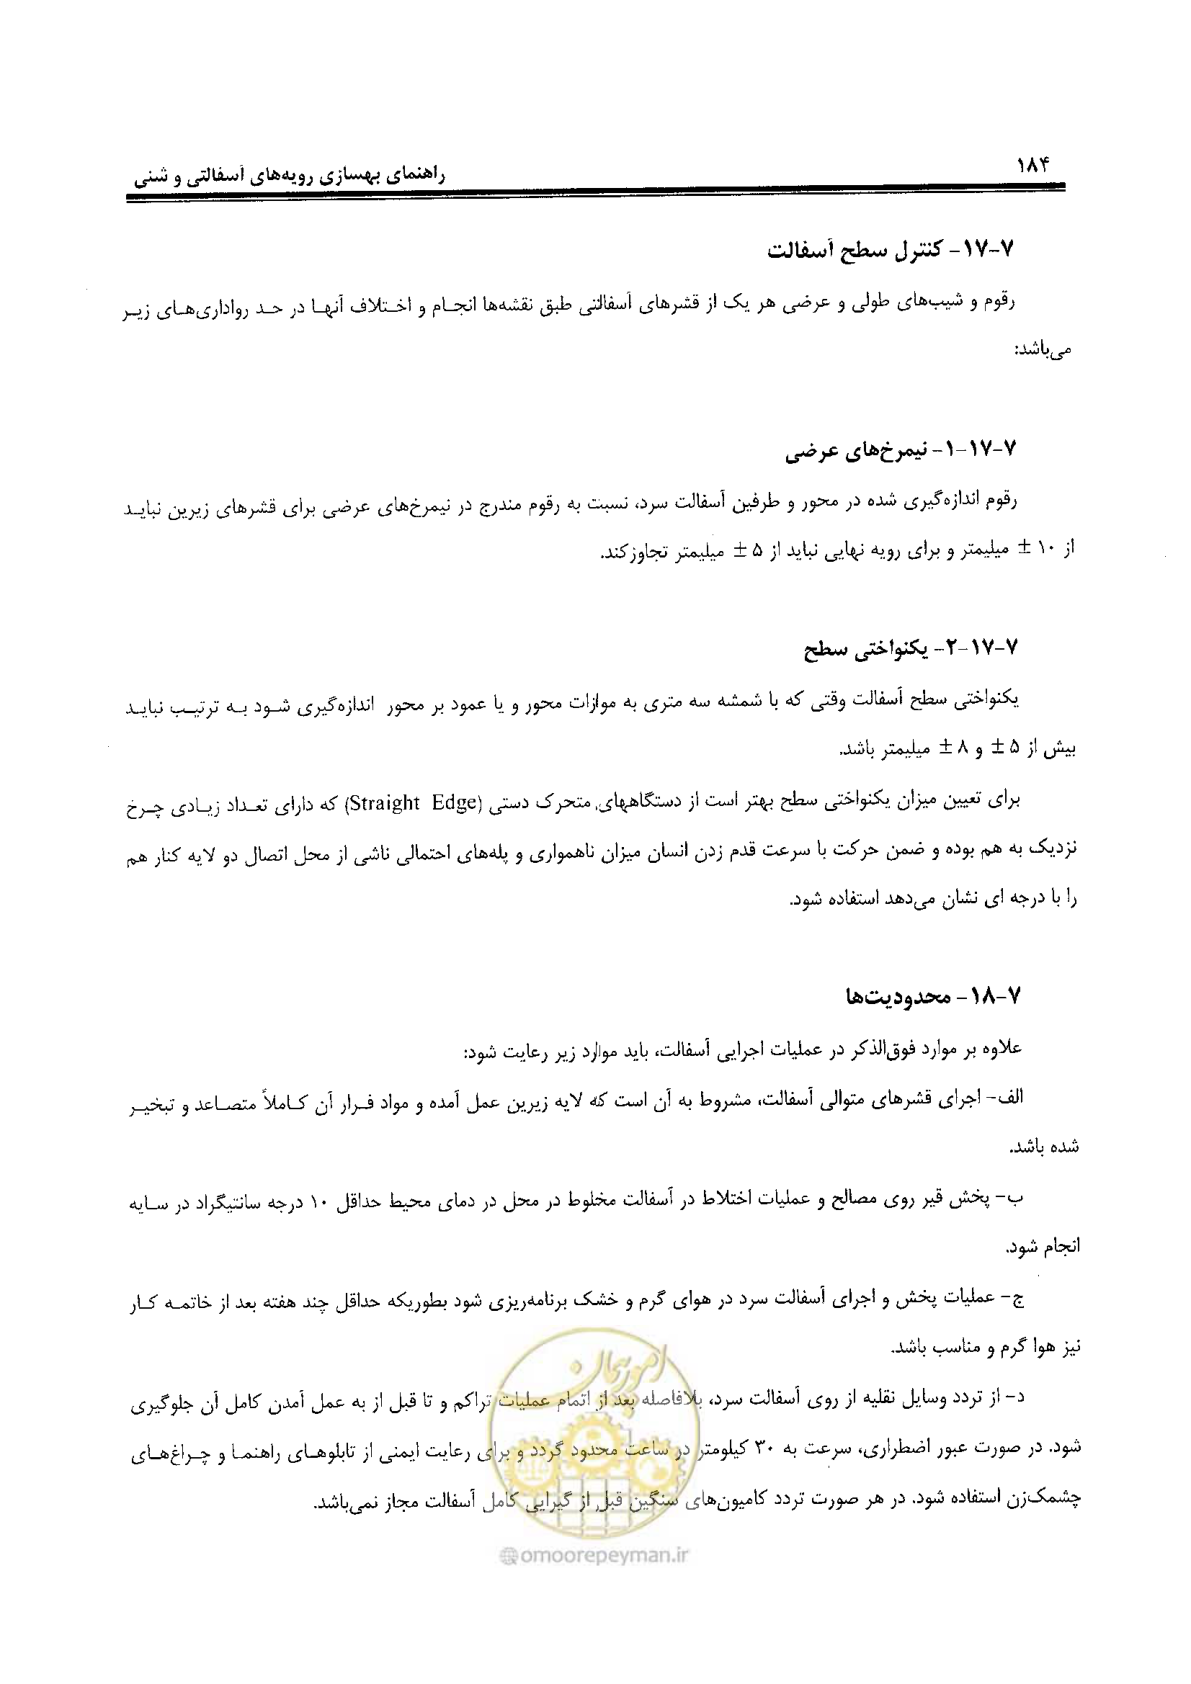 ۱۸۴
راهنمای بهسازی رویه‌های آسفالتی و شنی
۷-۱۷- کنترل سطح آسفالت
رقوم و شیب‌های طولی و عرضی هر یک از قشرهای آسفالتی طبق نقشه‌ها انجام و اختلاف آنها در حد رواداری‌های زیر
می‌باشد:
۷-۱۷-۱- نیمرخ‌های عرضی
رقوم اندازه‌گیری شده در محور و طرفین آسفالت سرد، نسبت به رقوم مندرج در نیمرخ‌های عرضی برای قشرهای زیرین نباید
از ۱۰ ± میلیمتر و برای رویه نهایی نباید از ۵ ± میلیمتر تجاوزکند.
۷-۱۷-۲- یکنواختی سطح
یکنواختی سطح آسفالت وقتی که با شمشه سه متری به موازات محور و یا عمود بر محور اندازه‌گیری شود به ترتیب نباید
بیش از ۵ ± و ۸ ± میلیمتر باشد.
برای تعیین میزان یکنواختی سطح بهتر است از دستگاههای متحرک دستی (Straight Edge) که دارای تعداد زیادی چرخ
نزدیک به هم بوده و ضمن حرکت با سرعت قدم زدن انسان میزان ناهمواری و پله‌های احتمالی ناشی از محل اتصال دو لایه کنار هم
را با درجه ای نشان می‌دهد استفاده شود.
۷-۱۸- محدودیت‌ها
علاوه بر موارد فوق‌الذکر در عملیات اجرایی آسفالت، باید موارد زیر رعایت شود:
الف- اجرای قشرهای متوالی آسفالت، مشروط به آن است که لایه زیرین عمل آمده و مواد فرار آن کاملاً متصاعد و تبخیر
شده باشد.
ب- پخش قیر روی مصالح و عملیات اختلاط در آسفالت مخلوط در محل در دمای محیط حداقل ۱۰ درجه سانتیگراد در سایه
انجام شود.
ج- عملیات پخش و اجرای آسفالت سرد در هوای گرم و خشک برنامه‌ریزی شود بطوریکه حداقل چند هفته بعد از خاتمه کار
نیز هوا گرم و مناسب باشد.
د- از تردد وسایل نقلیه از روی آسفالت سرد، بلافاصله بعد از اتمام عملیات تراکم و تا قبل از به عمل آمدن کامل آن جلوگیری
شود. در صورت عبور اضطراری، سرعت به ۳۰ کیلومتر در ساعت محدود گردد و برای رعایت ایمنی از تابلوهای راهنما و چراغ‌های
چشمک‌زن استفاده شود. در هر صورت تردد کامیون‌های سنگین قبل از گیرایی کامل آسفالت مجاز نمی‌باشد.
امور پیمان
@omoorepeyman.ir